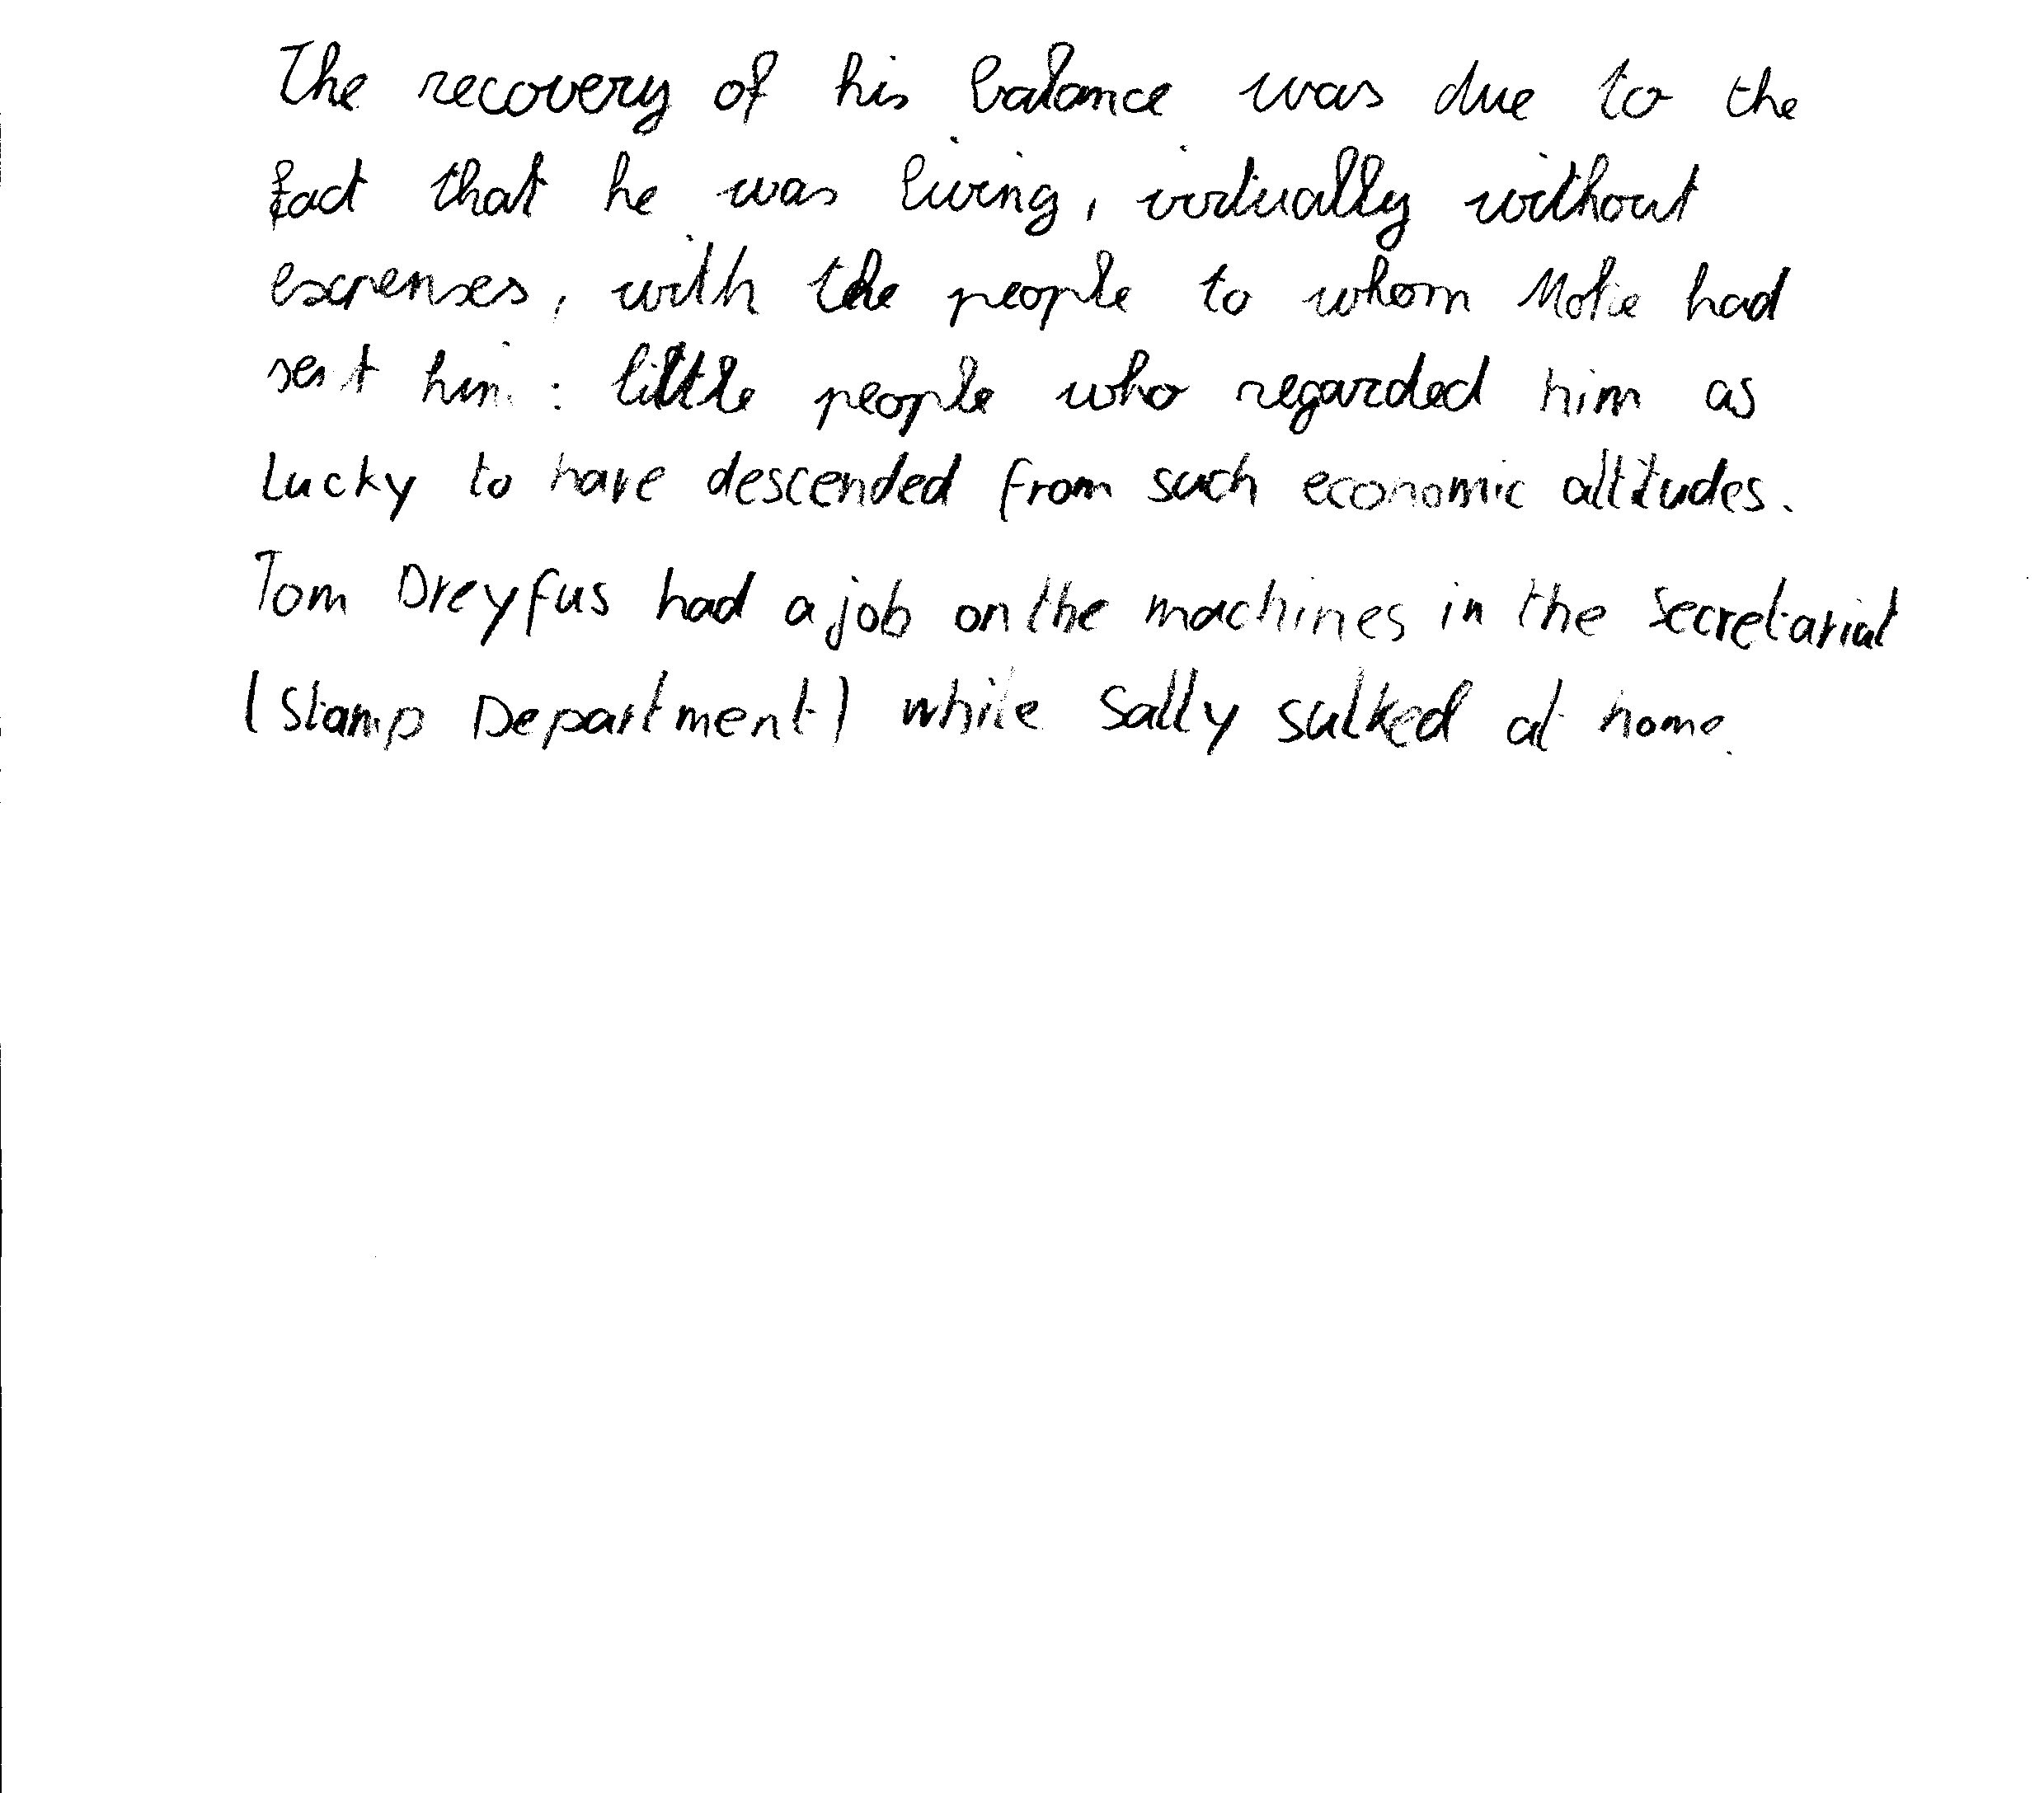 The recovery of his balance was due to the
fact that he was living, virtually without
expenses, with the people to whom had
sent him : little people who regarded him as
lucky to have descended from such economic altitudes.
Tom Dreyfus had a job on the machines in the secretariat
(Stamp Department) while Sally sulked at home.